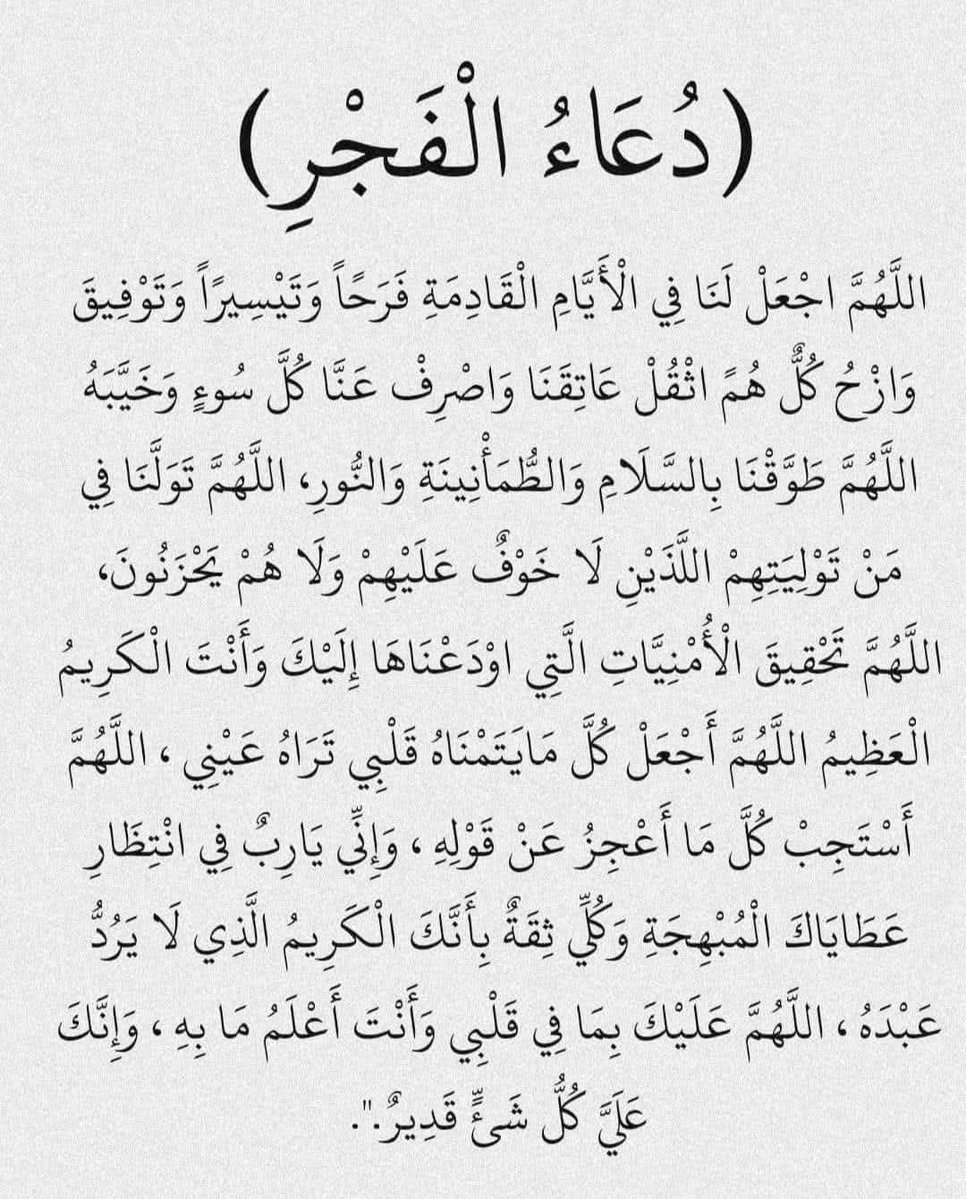 (دُعَاءُ الْفَجْرِ)
اللَّهُمَّ اجْعَلْ لَنَا فِي الْأَيَّامِ الْقَادِمَةِ فَرَحًاً وَتَيْسِيرًاً وَتَوْفِيقَ
وَازْحُ كُلٌّ هُمًّ اثْقُلْ عَاتِقَنَا وَاصْرِفْ عَنَّا كُلَّ سُوءٍ وَخَيَّبَهُ
اللَّهُمَّ طَوَّقْنَا بِالسَّلَامِ وَالطُّمَأْنِينَةِ وَالنُّورِ، اللَّهُمَّ تَوَلَّنَا فِي
مَنْ تَوْلِيَتِهِمْ اللَّذَيْنِ لَا خَوْفٌ عَلَيْهِمْ وَلَا هُمْ يَحْزَنُونَ،
اللَّهُمَّ تَحْقِيقَ الْأُمْنِيَّاتِ الَّتِي اوْدَعْنَاهَا إِلَيْكَ وَأَنْتَ الْكَرِيمُ
الْعَظِيمُ اللَّهُمَّ أَجْعَلْ كُلَّ مَايَتَمْنَاهُ قَلْبِي تَرَاهُ عَيْنِي ، اللَّهُمَّ
أَسْتَجِبْ كُلَّ مَا أَعْجِزُ عَنْ قَوْلِهِ ، وَإِنِّي يَارِبٌ فِي انْتِظَارِ
عَطَايَاكَ الْمُبْهِجَةِ وَكُلِّي ثِقَةٌ بِأَنَّكَ الْكَرِيمُ الَّذِي لَا يَرُدُّ
عَبْدَهُ ، اللَّهُمَّ عَلَيْكَ بِمَا فِي قَلْبِي وَأَنْتَ أَعْلَمُ مَا بِهِ ، وَإِنَّكَ
عَلَيَّ كُلُّ شَئٍّ قَدِيرٌ.".